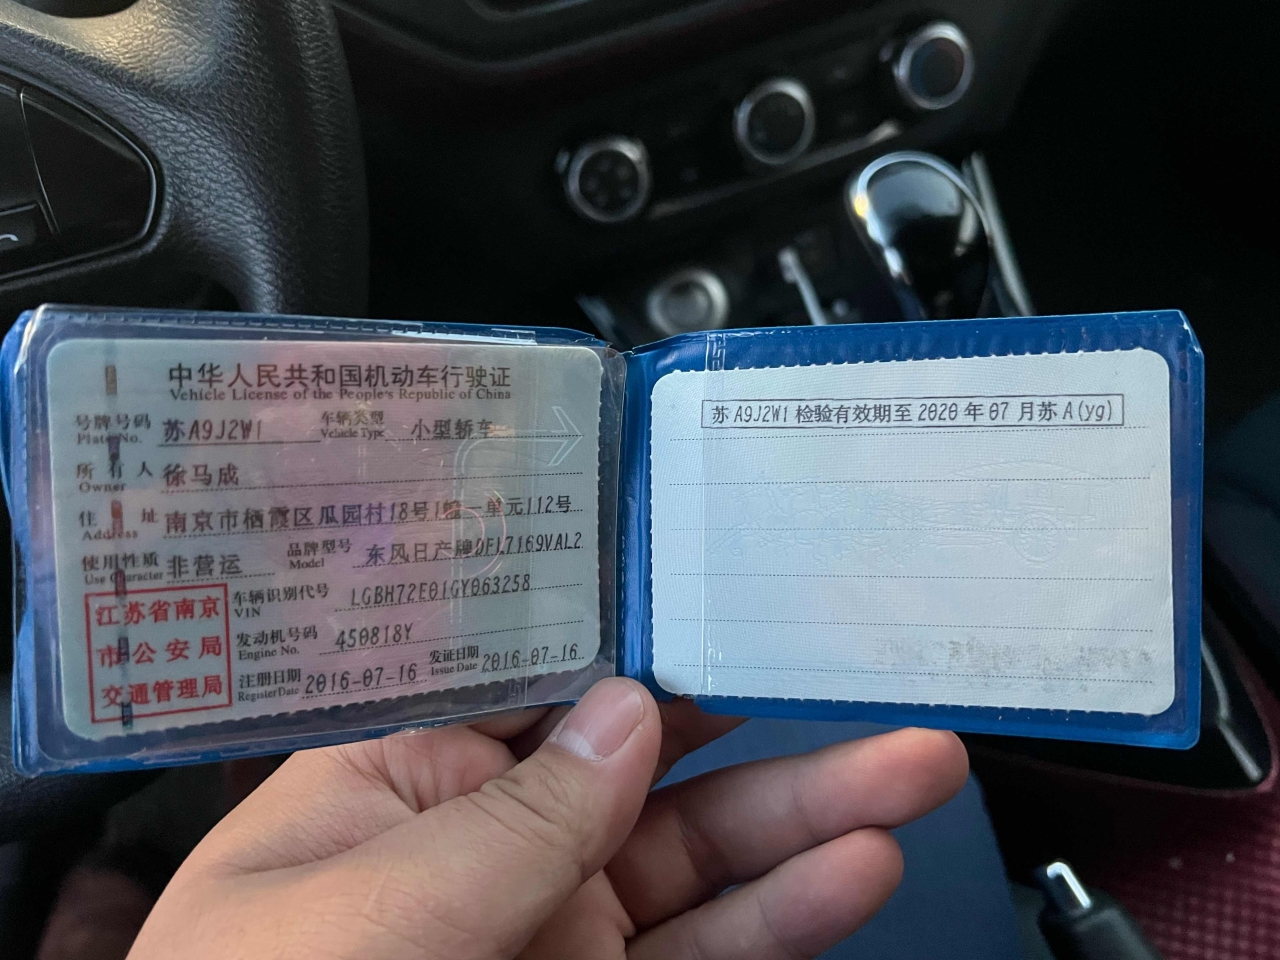 中华人民共和国机动车行驶证
Vehicle License of the People's Republic of China
号牌号码 苏A9J2W1 车辆类型 小型轿车
Plate No. Vehicle Type
所有人 徐马成
Owner
住址 南京市栖霞区瓜园村18号1幢一单元112号
Address
使用性质 非营运 品牌型号 东风日产牌DFL7169VAL2
Use Character Model
车辆识别代号 LGBH72E01GY063258
VIN
发动机号码 450818Y
Engine No.
注册日期 2016-07-16 发证日期 2016-07-16
Register Date Issue Date
江苏省南京
市公安局
交通管理局
苏A9J2W1检验有效期至2020年07月苏A(yg)